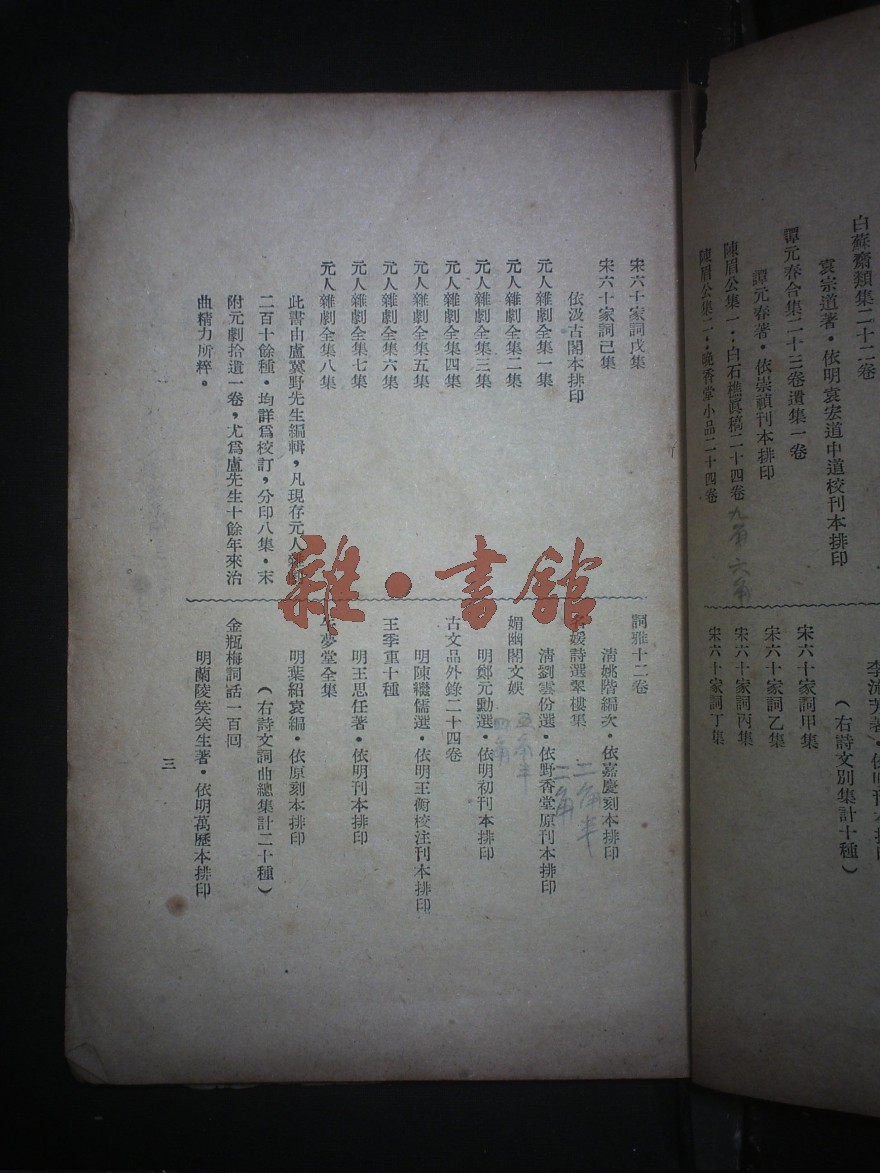 白蘇齋類集二十二卷
袁宗道著・依明袁宏道中道校刊本排印
譚元春合集二十三卷遺集一卷
譚元春著・依崇禎刊本排印
陳眉公集一・・白石樵眞稿二十四卷 九角六角
陳眉公集二・・晚香堂小品二十四卷
李流芳著・依明刊本排印
(右詩文別集計十種)
宋六十家詞甲集
宋六十家詞乙集
宋六十家詞丙集
宋六十家詞丁集
宋六十家詞戊集
宋六十家詞己集
依汲古閣本排印
元人雜劇全集一集
元人雜劇全集二集
元人雜劇全集三集
元人雜劇全集四集
元人雜劇全集五集
元人雜劇全集六集
元人雜劇全集七集
元人雜劇全集八集
此書由盧冀野先生編輯,凡現存元人雜劇
二百十餘種・均詳爲校訂,分印八集・末
附元劇拾遺一卷,尤爲盧先生十餘年來治
曲精力所粹。
詞雅十二卷
清姚階編次・依嘉慶刻本排印
二角半
名媛詩選翠樓集
二角
清劉雲份選・依野香堂原刊本排印
媚幽閣文娛
五角半
四角
明鄭元勳選・依明初刊本排印
古文品外錄二十四卷
明陳繼儒選・依明王衡校注刊本排印
王季重十種
明王思任著・依明刊本排印
午夢堂全集
明葉紹袁編・依原刻本排印
(右詩文詞曲總集計二十種)
金瓶梅詞話一百回
明蘭陵笑笑生著・依明萬歷本排印
三
雜・書館